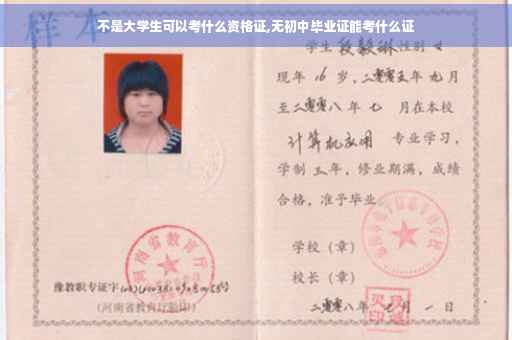 不是大学生可以考什么资格证,无初中毕业证能考什么证
样本
学生段毅琳性别女
现年16岁,二零零五年九月
至二零零八年七月在本校
计算机应用专业学习,
学制三年,修业期满,成绩
合格,准予毕业。
学校(章)
校长(章)
二零零八年七月一日
河南省教育厅
豫教职专证字
(河南省教育厅验印)